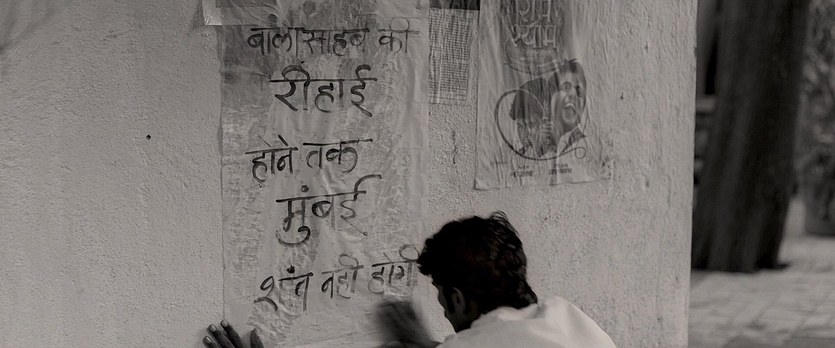 बालासाहब की
रीहाई
होने तक
मुंबई
शांत नही होगी
राम
श्याम